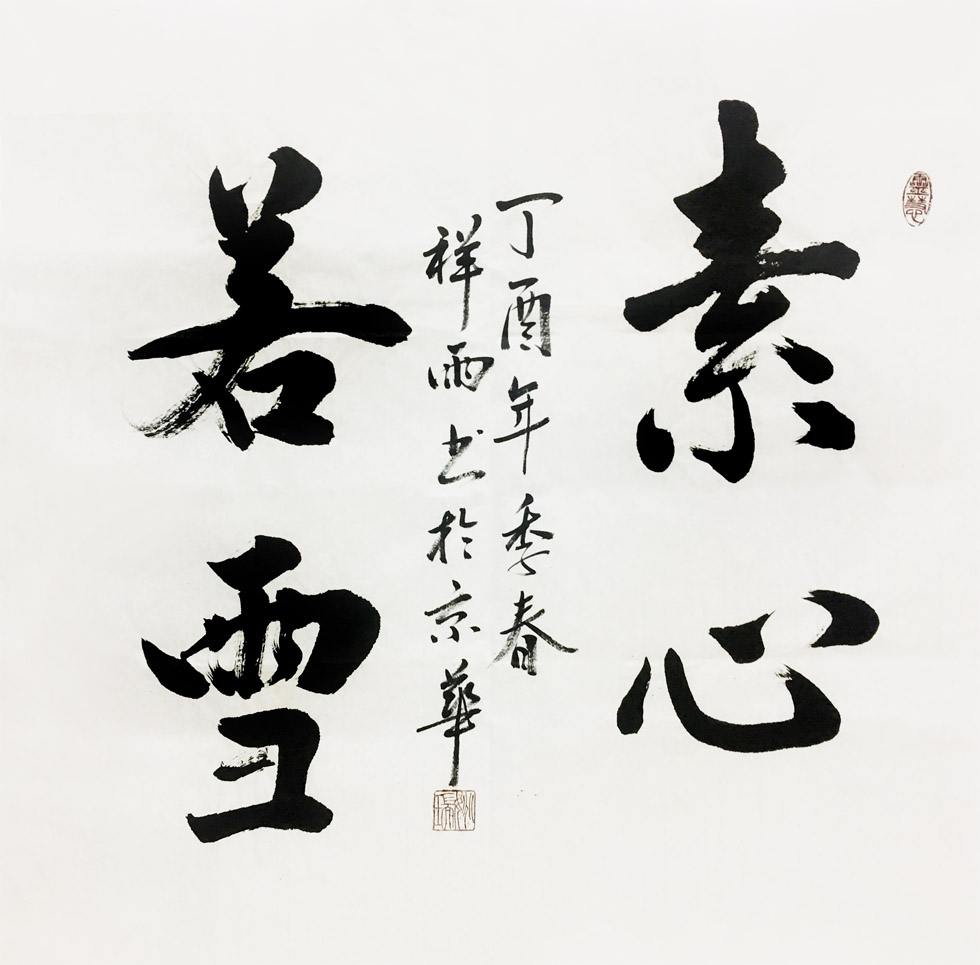 素心
丁酉年季春
祥雨书於京華
若雪